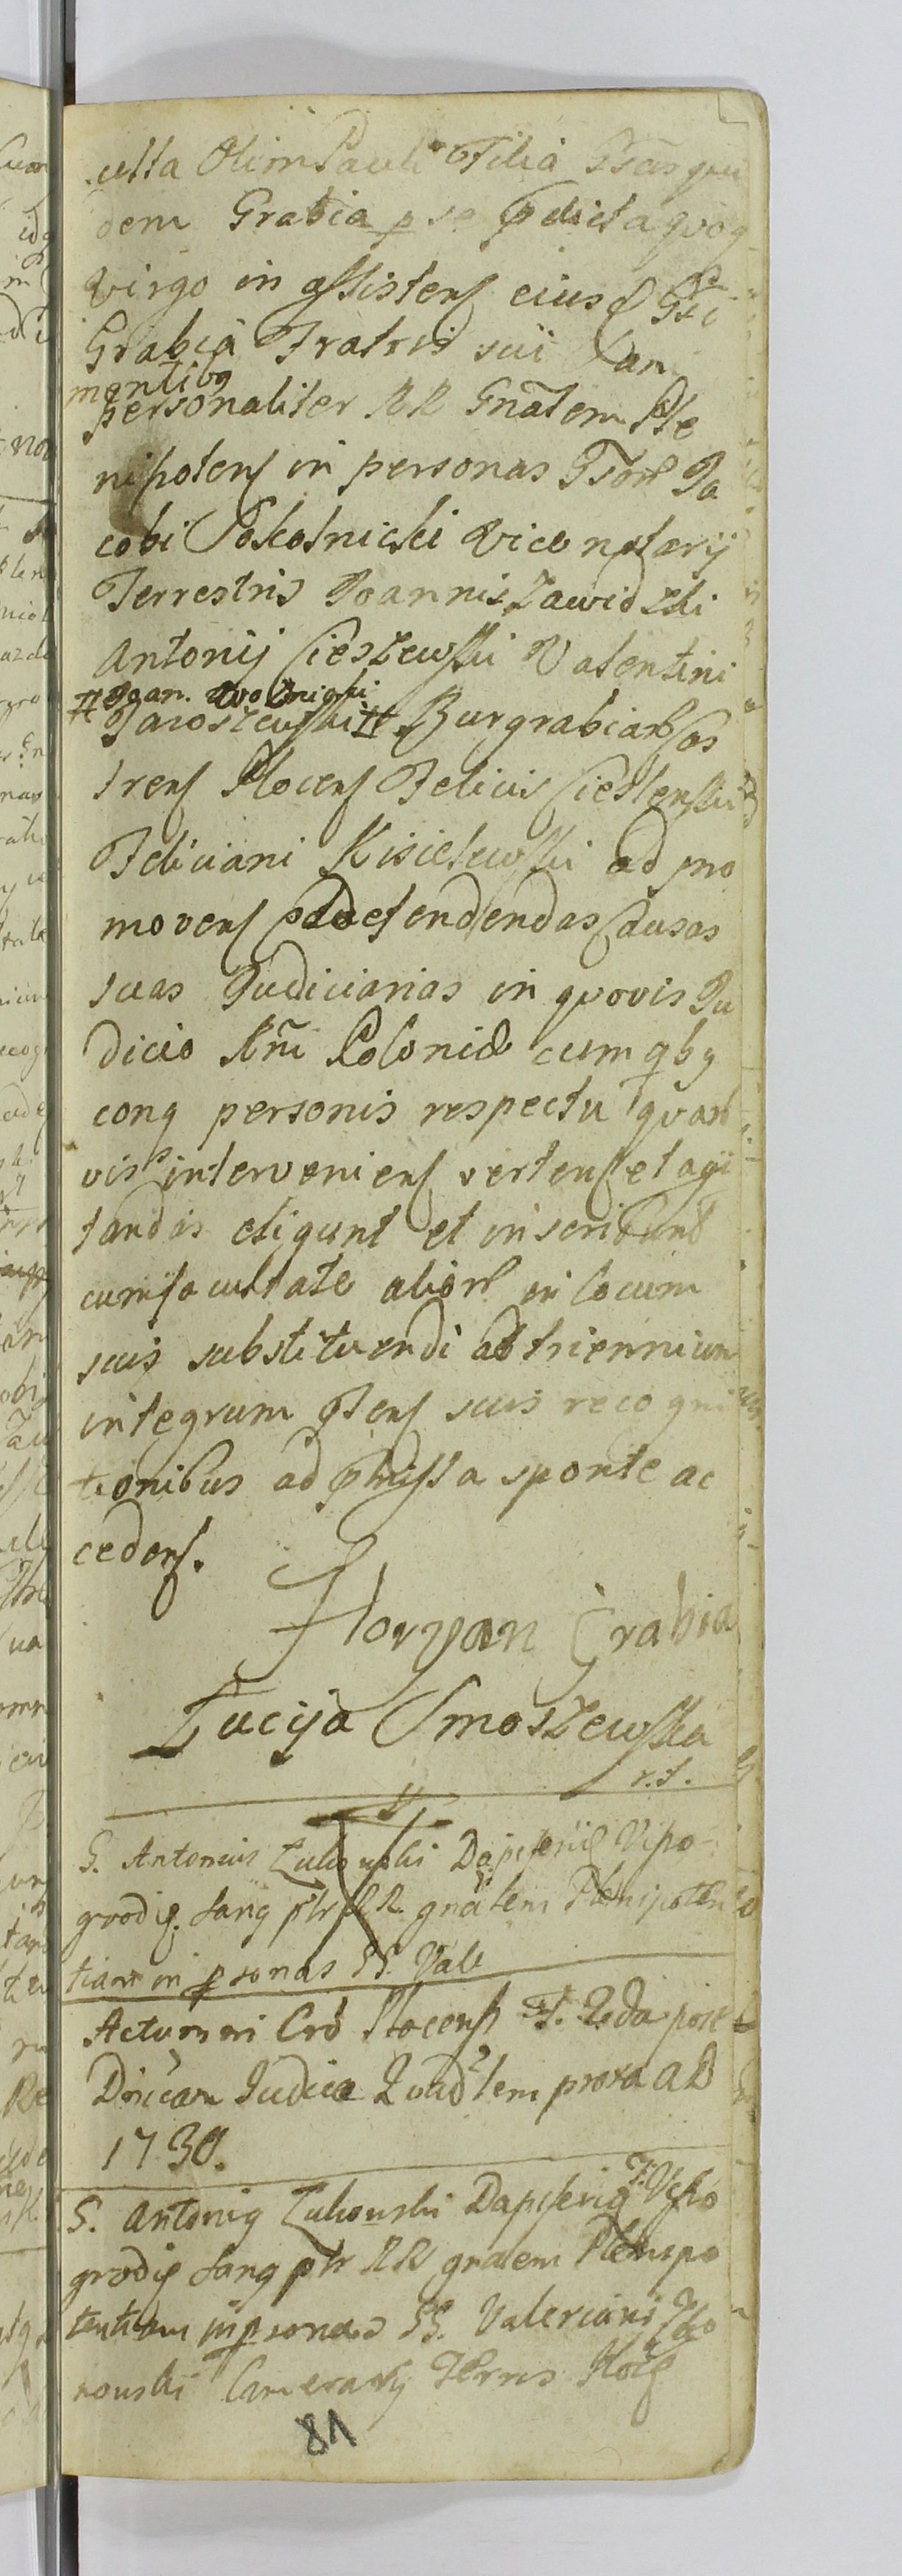 culta Olim Pauli Filia
dem Grabia p se pdicta quoq
virgo in assistens eiusd Gsi
Grabia Fratris sui Tan
mentibq
personaliter RR Gnatem Ple
nipotens in personas GGor Ja
cobi Pokotnicki Vice notarij
Terrestris Joannis Zawidzki
Antonij Cieszewski Valentini
# Joan. Wolinicki
Jaroszewski # Burgrabiar Cas
trens Plocens Felicis
Feliciani Kisielewski ad pro
movens defendendas Causas
suas Judiciarias in quovis Ju
dicio Rni Poloniæ cum qbq
conq personis respectu quar
vis interveniens vertens et agi
tandas eligunt et inscribunt
cum facultate alior in locum
suis substituendi ad triennium
integrum suis recogni
tionibus ad pmissa sponte ac
cedens.
Floryan Grabia
Łucija Smoszewska
G. Antonius Zukowski Dapiferid Vipo
grodis. Sanq ptr RR gnalem Plenipoten
tiam in psonas GG. Vale
Actum in Cro Plocens F. 2da post
Dnicam Judica Quadlem proxa AD
1730.
G. Antoniq Zukowski Dapiferiq
grodis Sanq ptr RR gnalem Plenipo
tentiam in psonas GG. Valeriani
nowski Camerarij Terris Ploc
81